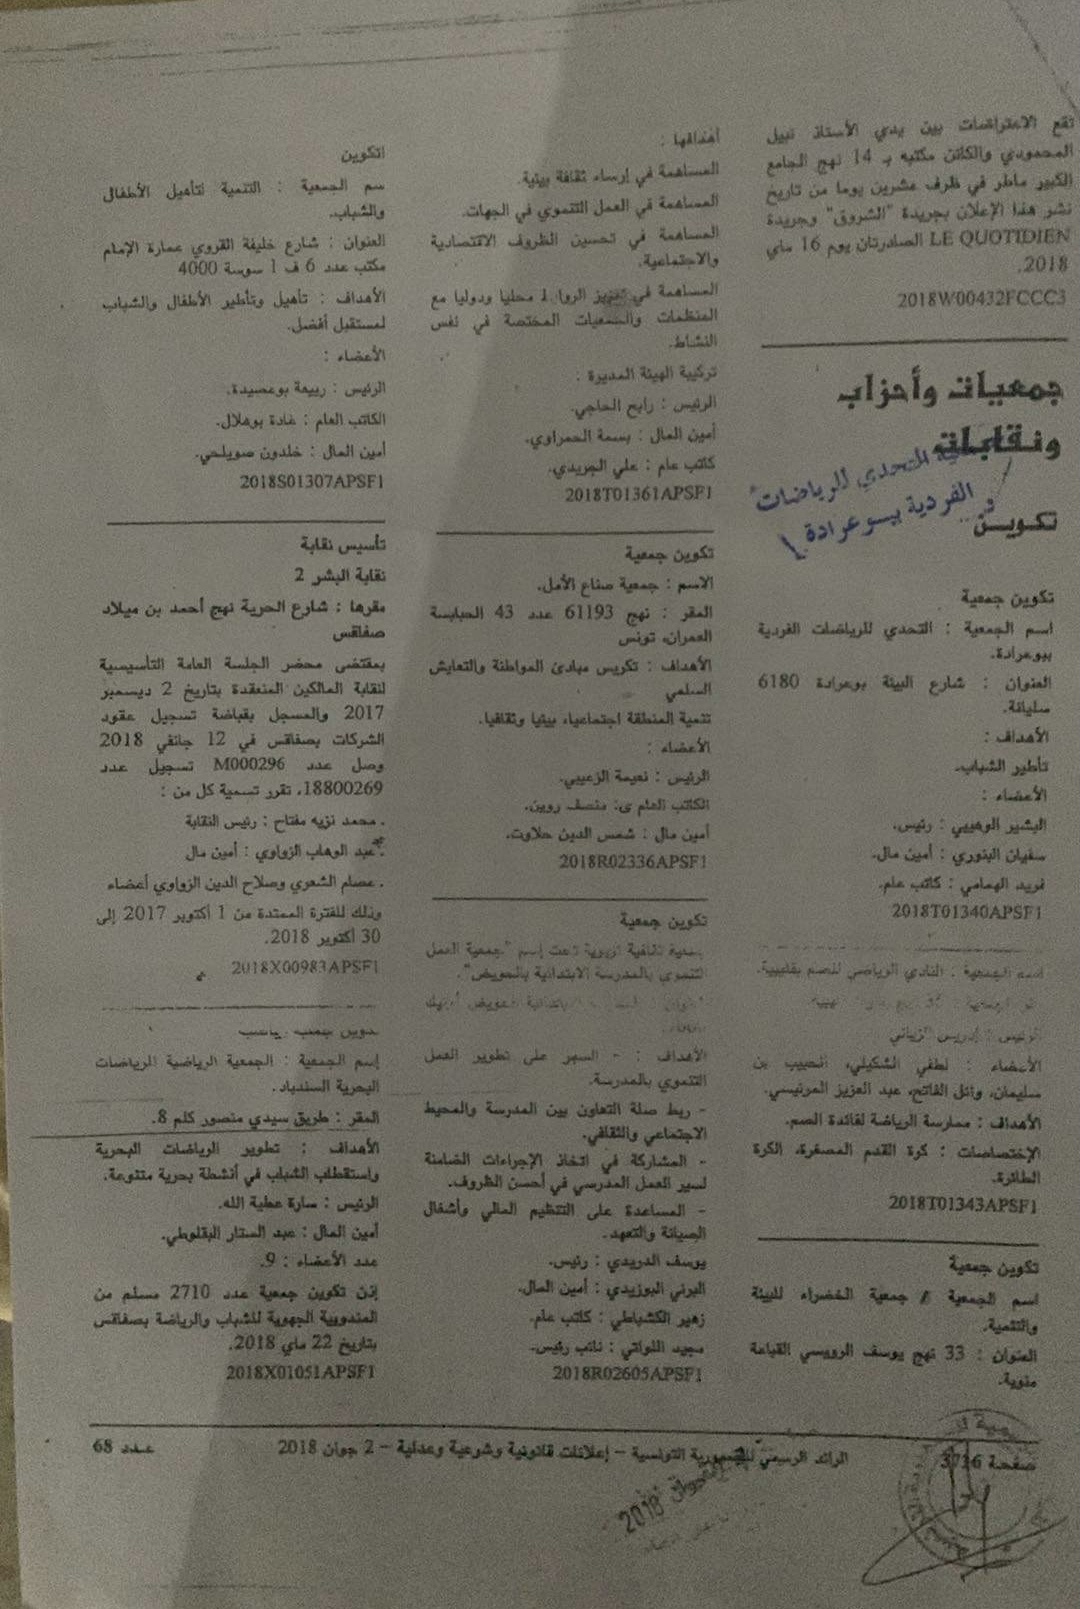 تقع الاعتراضات بين يدي الأستاذ نبيل
المحمودي والكائن مكتبه بـ 14 نهج الجامع
الكبير ماطر في ظرف عشرين يوما من تاريخ
نشر هذا الإعلان بجريدة "الشروق" وجريدة
LE QUOTIDIEN الصادرتان يوم 16 ماي
2018.
2018W00432FCCC3
جمعيات وأحزاب
ونقابات
التحدي للرياضات
الفردية ببوعرادة
تكويـن
تكوين جمعية
اسم الجمعية : التحدي للرياضات الفردية
ببوعرادة.
العنوان : شارع البيئة بوعرادة 6180
سليانة.
الأهداف :
تأطير الشباب.
الأعضاء :
البشير الوهيبي : رئيس.
سفيان البنوري : أمين مال.
فريد الهمامي : كاتب عام.
2018T01340APSF1
اسم الجمعية : النادي الرياضي للصم بقليبية.
الرئيس : إدريس الزياني
الأعضاء : لطفي الشكيلي، الحبيب بن
سليمان، وائل الفاتح، عبد العزيز المرنيسي.
الأهداف : ممارسة الرياضة لفائدة الصم.
الإختصاصات : كرة القدم المصغرة، الكرة
الطائرة.
2018T01343APSF1
تكوين جمعية
اسم الجمعية / جمعية الخضراء للبيئة
والتنمية.
العنوان : 33 نهج يوسف الرويسي القباعة
منوبة.
أهدافها :
المساهمة في إرساء ثقافة بيئية.
المساهمة في العمل التنموي في الجهات.
المساهمة في تحسين الظروف الاقتصادية
والاجتماعية.
المساهمة في تعزيز الروابط محليا ودوليا مع
المنظمات والجمعيات المختصة في نفس
النشاط.
تركيبة الهيئة المديرة :
الرئيس : رابح الحاجي.
أمين المال : بسمة الحمراوي.
كاتب عام : علي الجريدي.
2018T01361APSF1
تكوين جمعية
الاسم : جمعية صناع الأمل.
المقر : نهج 61193 عدد 43 الحبايبية
العمران، تونس
الأهداف : تكريس مبادئ المواطنة والتعايش
السلمي
تنمية المنطقة اجتماعيا، بيئيا وثقافيا.
الأعضاء :
الرئيس : نعيمة الزعيبي.
الكاتب العام ى: منصف روين.
أمين مال : شمس الدين حلاوت.
2018R02336APSF1
تكوين جمعية
ثقافية تربوية تحت إسم "جمعية العمل
التنموي بالمدرسة الابتدائية بالحويض".
الأهداف : - السهر على تطوير العمل
التنموي بالمدرسة.
- ربط صلة التعاون بين المدرسة والمحيط
الاجتماعي والثقافي.
- المشاركة في اتخاذ الإجراءات الضامنة
لسير العمل المدرسي في أحسن الظروف.
- المساعدة على التنظيم المالي وأشغال
الصيانة والتعهد.
يوسف الدريدي : رئيس.
البرني البوزيدي : أمين المال.
زهير الكشباطي : كاتب عام.
مجيد اللواتي : نائب رئيس.
2018R02605APSF1
اتكوين
سم الجمعية : التنمية لتأهيل الأطفال
والشباب.
العنوان : شارع خليفة القروي عمارة الإمام
مكتب عدد 6 ف 1 سوسة 4000
الأهداف : تأهيل وتأطير الأطفال والشباب
لمستقبل أفضل.
الأعضاء :
الرئيس : ربيعة بوعصيدة.
الكاتب العام : غادة بوهلال.
أمين المال : خلدون صويلحي.
2018S01307APSF1
تأسيس نقابة
نقابة البشر 2
مقرها : شارع الحرية نهج أحمد بن ميلاد
صفاقس
بمقتضى محضر الجلسة العامة التأسيسية
لنقابة المالكين المنعقدة بتاريخ 2 ديسمبر
2017 والمسجل بقباضة تسجيل عقود
الشركات بصفاقس في 12 جانفي 2018
وصل عدد M000296 تسجيل عدد
18800269، تقرر تسمية كل من :
. محمد نزيه مفتاح : رئيس النقابة
. عبد الوهاب الزواوي : أمين مال
. عصام الشعري وصلاح الدين الزواوي أعضاء
وذلك للفترة الممتدة من 1 أكتوبر 2017 إلى
30 أكتوبر 2018.
2018X00983APSF1
إسم الجمعية : الجمعية الرياضية للرياضات
البحرية السندباد.
المقر : طريق سيدي منصور كلم 8.
الأهداف : تطوير الرياضات البحرية
واستقطاب الشباب في أنشطة بحرية متنوعة.
الرئيس : سارة عطية الله.
أمين المال : عبد الستار البقلوطي.
عدد الأعضاء : 9.
إذن تكوين جمعية عدد 2710 مسلم من
المندوبية الجهوية للشباب والرياضة بصفاقس
بتاريخ 22 ماي 2018.
2018X01051APSF1
صفحة 3716 الرائد الرسمي للجمهورية التونسية – إعلانات قانونية وشرعية وعدلية – 2 جوان 2018 عـدد 68
جوان 2018